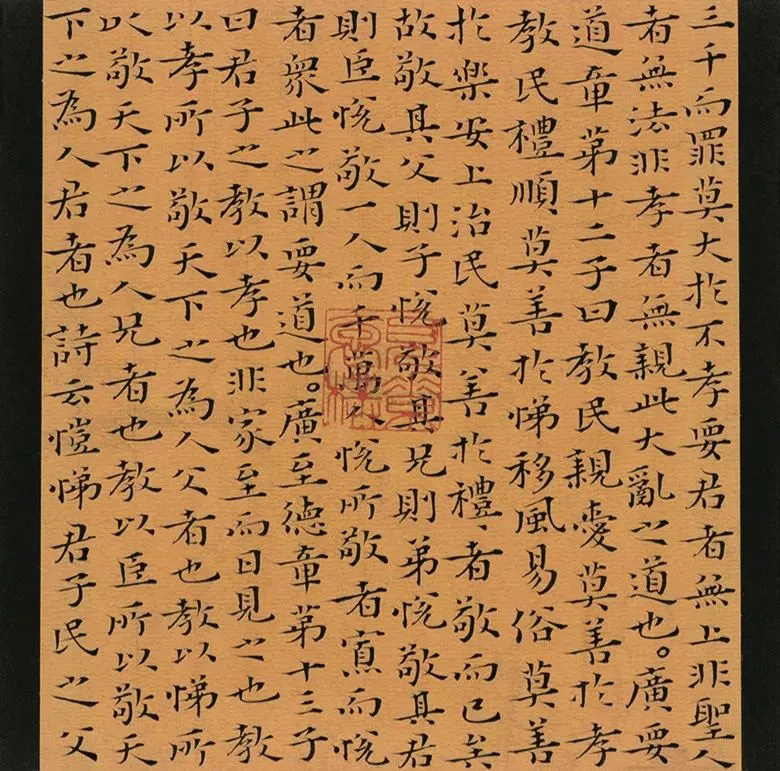 三千而罪莫大於不孝要君者無上非聖人
者無法非孝者無親此大亂之道也。廣要
道章第十二子曰教民親愛莫善於孝
教民禮順莫善於悌移風易俗莫善
於樂安上治民莫善於禮、者敬而已矣
故敬其父則子悅敬其兄則弟悅敬其君
則臣悅敬一人而千萬人悅所敬者寡而悅
者衆此之謂要道也。廣至德章第十三子
曰君子之教以孝也非家至而日見之也教
以孝所以敬天下之為人父者也教以悌所
以敬天下之為人兄者也教以臣所以敬天
下之為人君者也詩云愷悌君子民之父